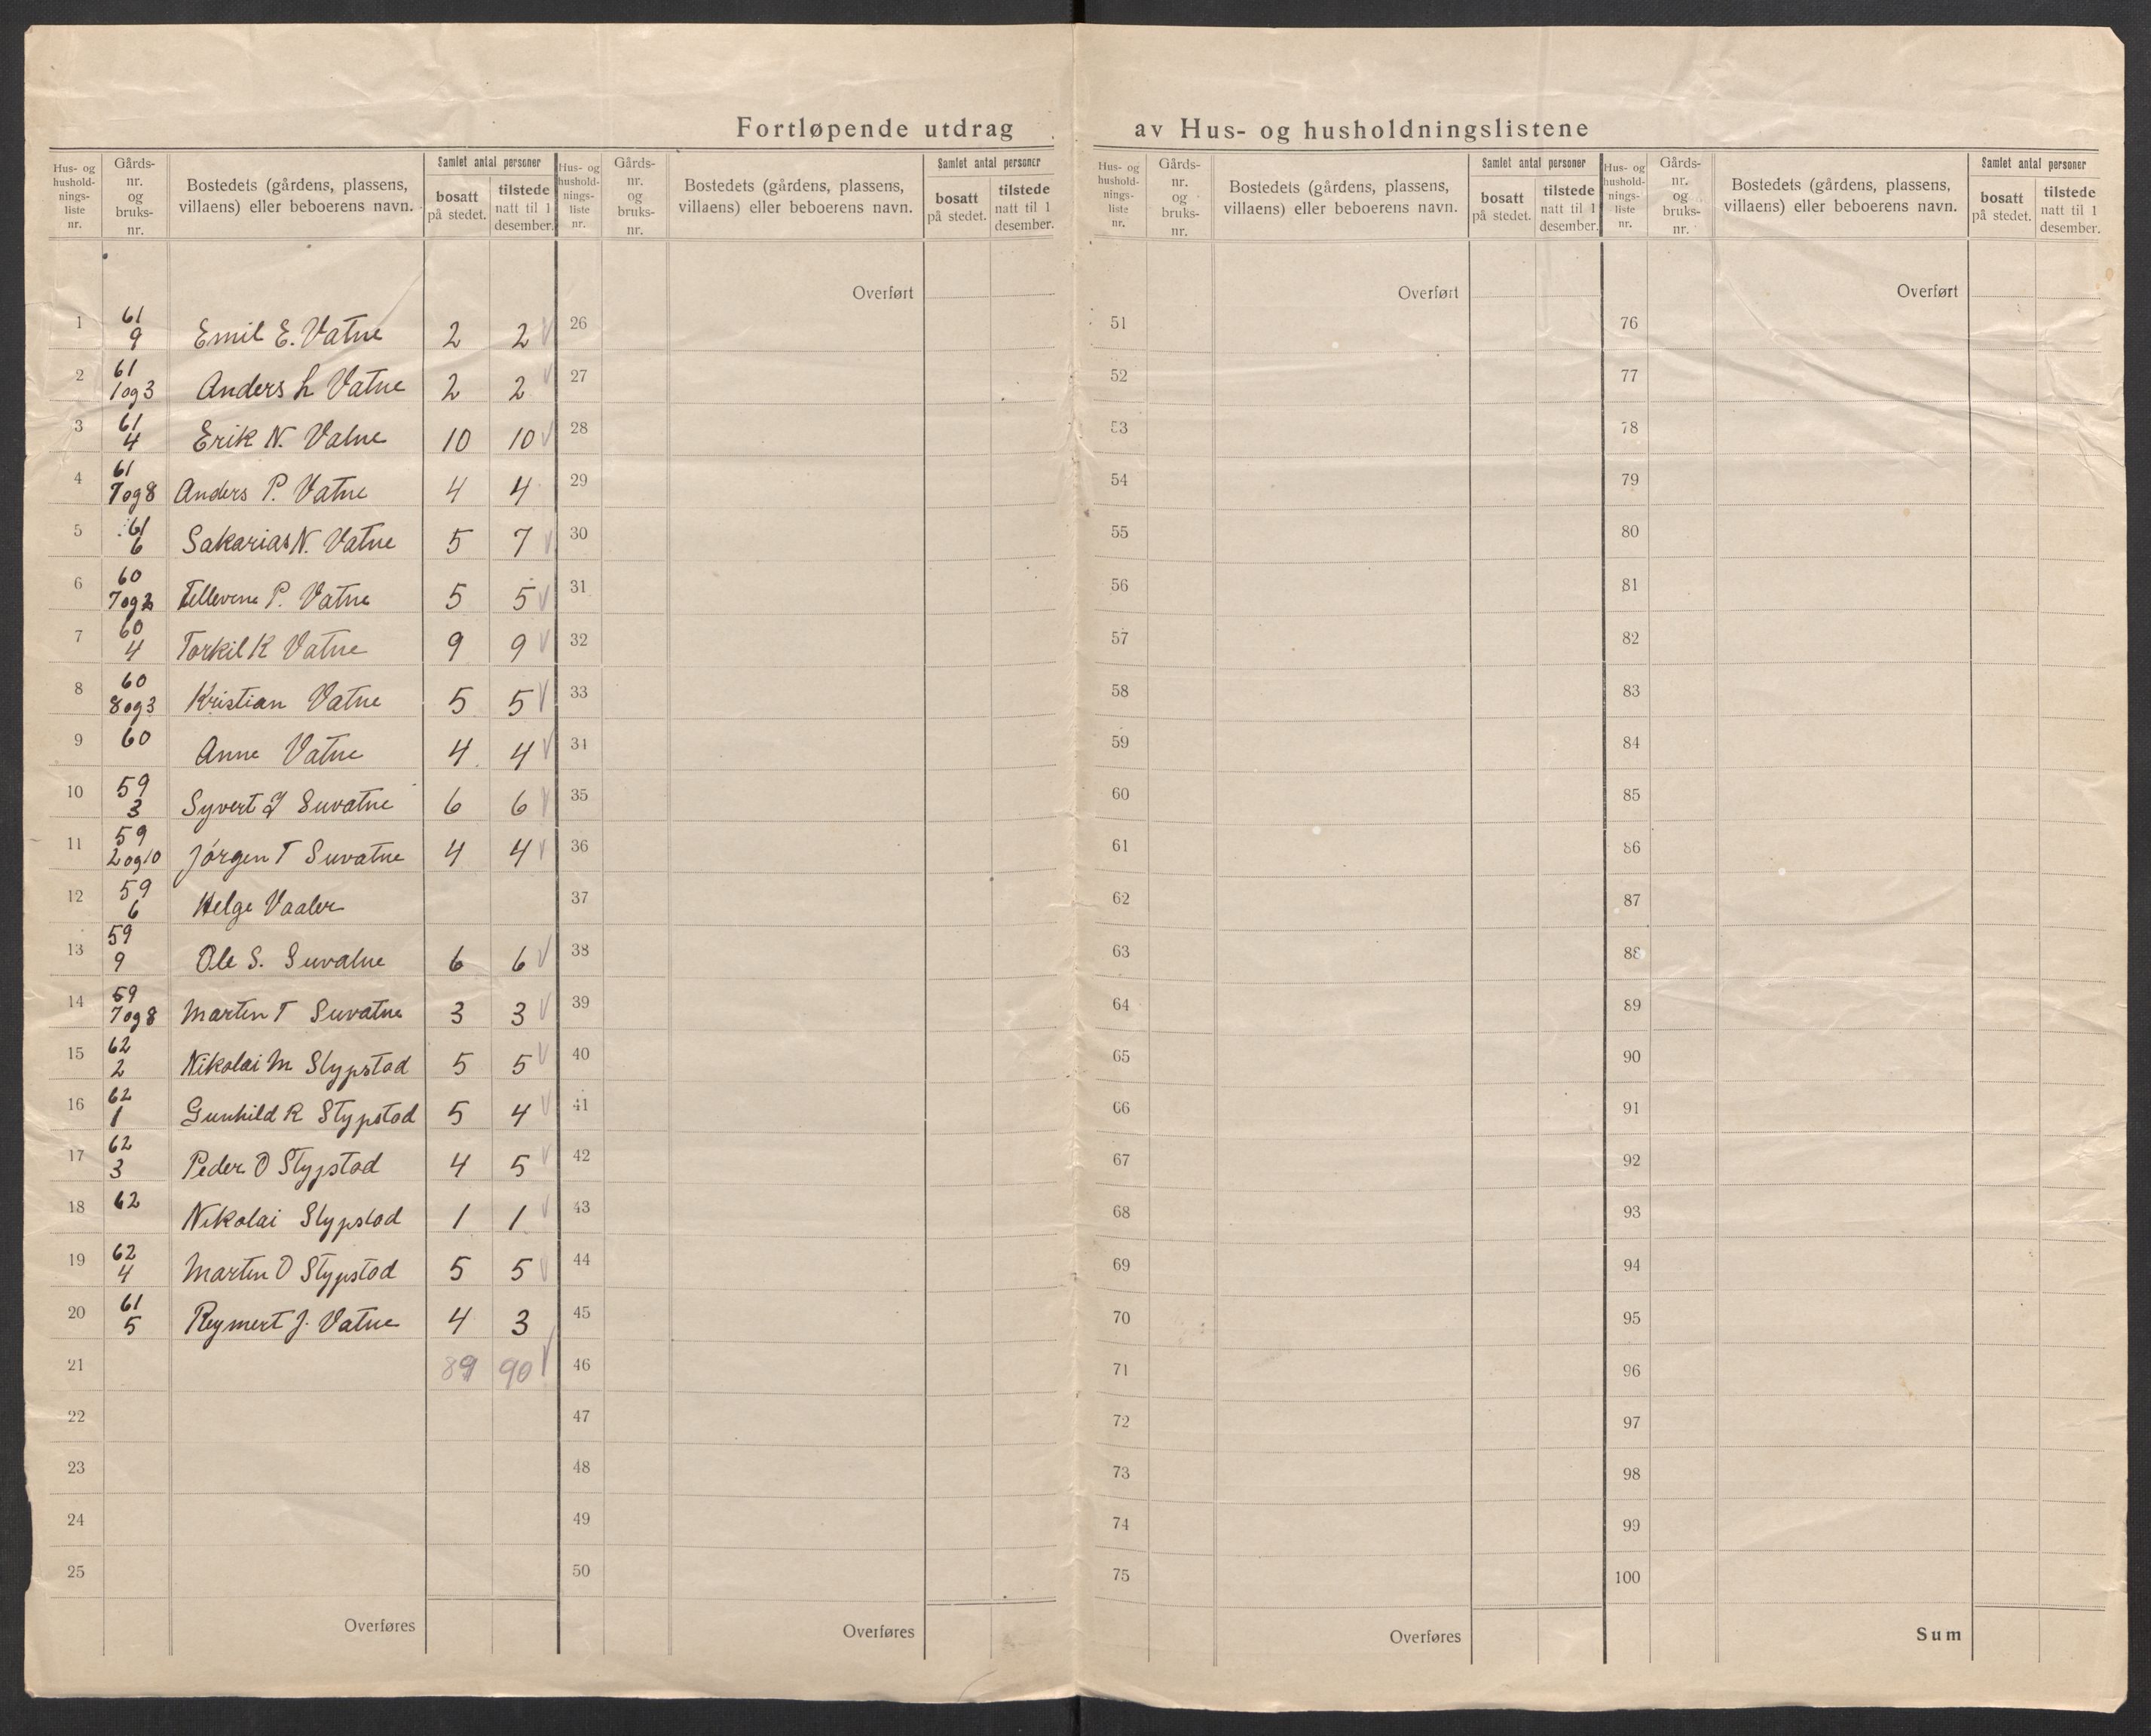 Fortløpende utdrag av Hus- og husholdningslistene
Hus- og hushold-nings-liste nr. Gårds-nr. og bruks-nr. Bostedets (gårdens, plassens, villaens) eller beboerens navn. Samlet antal personer bosatt på stedet. tilstede natt til 1 desember.
Hus- og hushold-nings-liste nr. Gårds-nr. og bruks-nr. Bostedets (gårdens, plassens, villaens) eller beboerens navn. Samlet antal personer bosatt på stedet. tilstede natt til 1 desember.
Hus- og hushold-nings-liste nr. Gårds-nr. og bruks-nr. Bostedets (gårdens, plassens, villaens) eller beboerens navn. Samlet antal personer bosatt på stedet. tilstede natt til 1 desember.
Hus- og hushold-nings-liste nr. Gårds-nr. og bruks-nr. Bostedets (gårdens, plassens, villaens) eller beboerens navn. Samlet antal personer bosatt på stedet. tilstede natt til 1 desember.
Overført Overført Overført
1 61 9 Emil E. Vatne 2 2 26 51 76
2 61 1og3 Anders L Vatne 2 2 27 52 77
3 61 4 Erik N. Vatne 10 10 28 53 78
4 61 7og8 Anders P. Vatne 4 4 29 54 79
5 61 6 Sakarias N. Vatne 5 7 30 55 80
6 60 7og2 P. Vatne 5 5 31 56 81
7 60 4 Torkil K Vatne 9 9 32 57 82
8 60 8og3 Kristian Vatne 5 5 33 58 83
9 60 Anne Vatne 4 4 34 59 84
10 59 3 Syvert J Suvatne 6 6 35 60 85
11 59 2og10 Jørgen T Suvatne 4 4 36 61 86
12 59 6 Helge Vaaler 37 62 87
13 59 9 Ole S. Suvatne 6 6 38 63 88
14 59 7og8 Marten T Suvatne 3 3 39 64 89
15 62 2 Nikolai M Stypstad 5 5 40 65 90
16 62 1 Gunhild R Stypstad 5 4 41 66 91
17 62 3 Peder O Stypstad 4 5 42 67 92
18 62 Nikolai Stypstad 1 1 43 68 93
19 62 4 Marten O Stypstad 5 5 44 69 94
20 61 5 Reymert J. Vatne 4 3 45 70 95
21 89 90 46 71 96
22 47 72 97
23 48 73 98
24 49 74 99
25 50 75 100
Overføres Overføres Overføres Sum